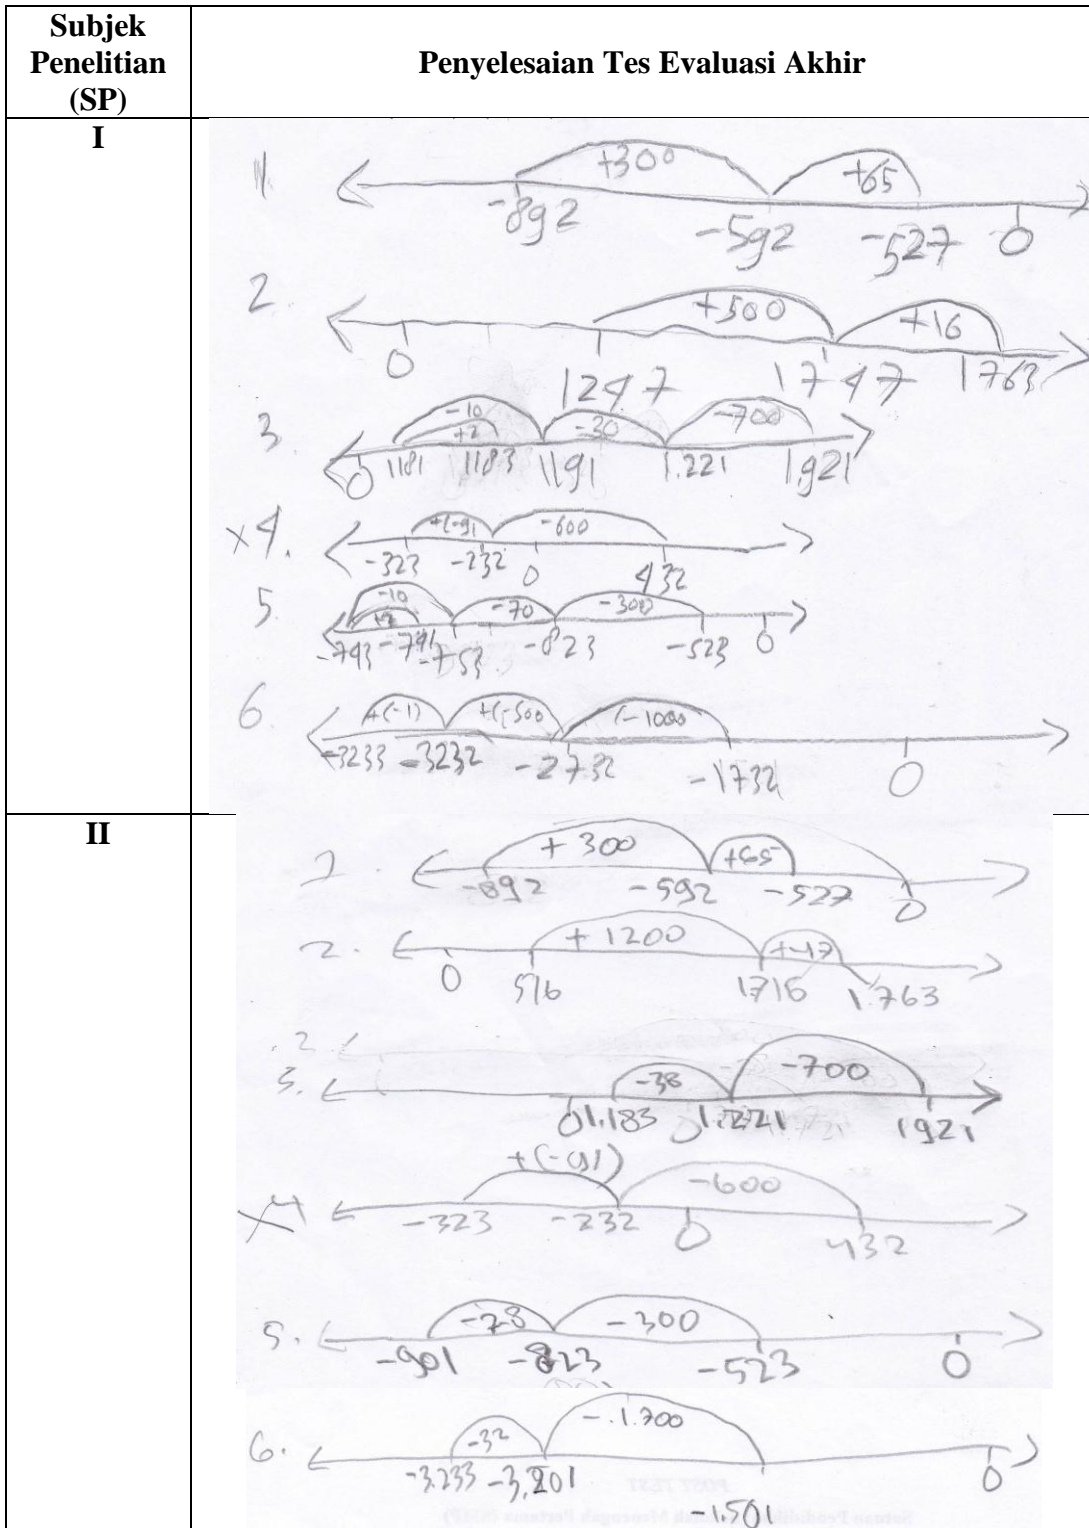 Subjek Penelitian (SP)
Penyelesaian Tes Evaluasi Akhir
I
1.
+300 +65
-892 -592 -527 0
2.
+500 +16
0 1247 1747 1763
3
-10 +2 -30 -700
0 1181 1183 1191 1.221 1.921
×4.
+(-91 -600
-323 -232 0 432
5.
-10 -70 -300
-743 -741 -753 -823 -523 0
6.
+(-1) +(-500 (-1000
-3233 -3232 -2732 -1732 0
II
1.
+300 +65
-892 -592 -527 0
2.
+1200
0 516 1716 1.763
.2
3.
-38 -700
0 1.183 0 1.221 1921
×4
+(-91) -600
-323 -232 0 432
5.
-78 -300
-901 -823 -523 0
6.
-32 -.1.700
-3.233 -3,201 -1.501 0